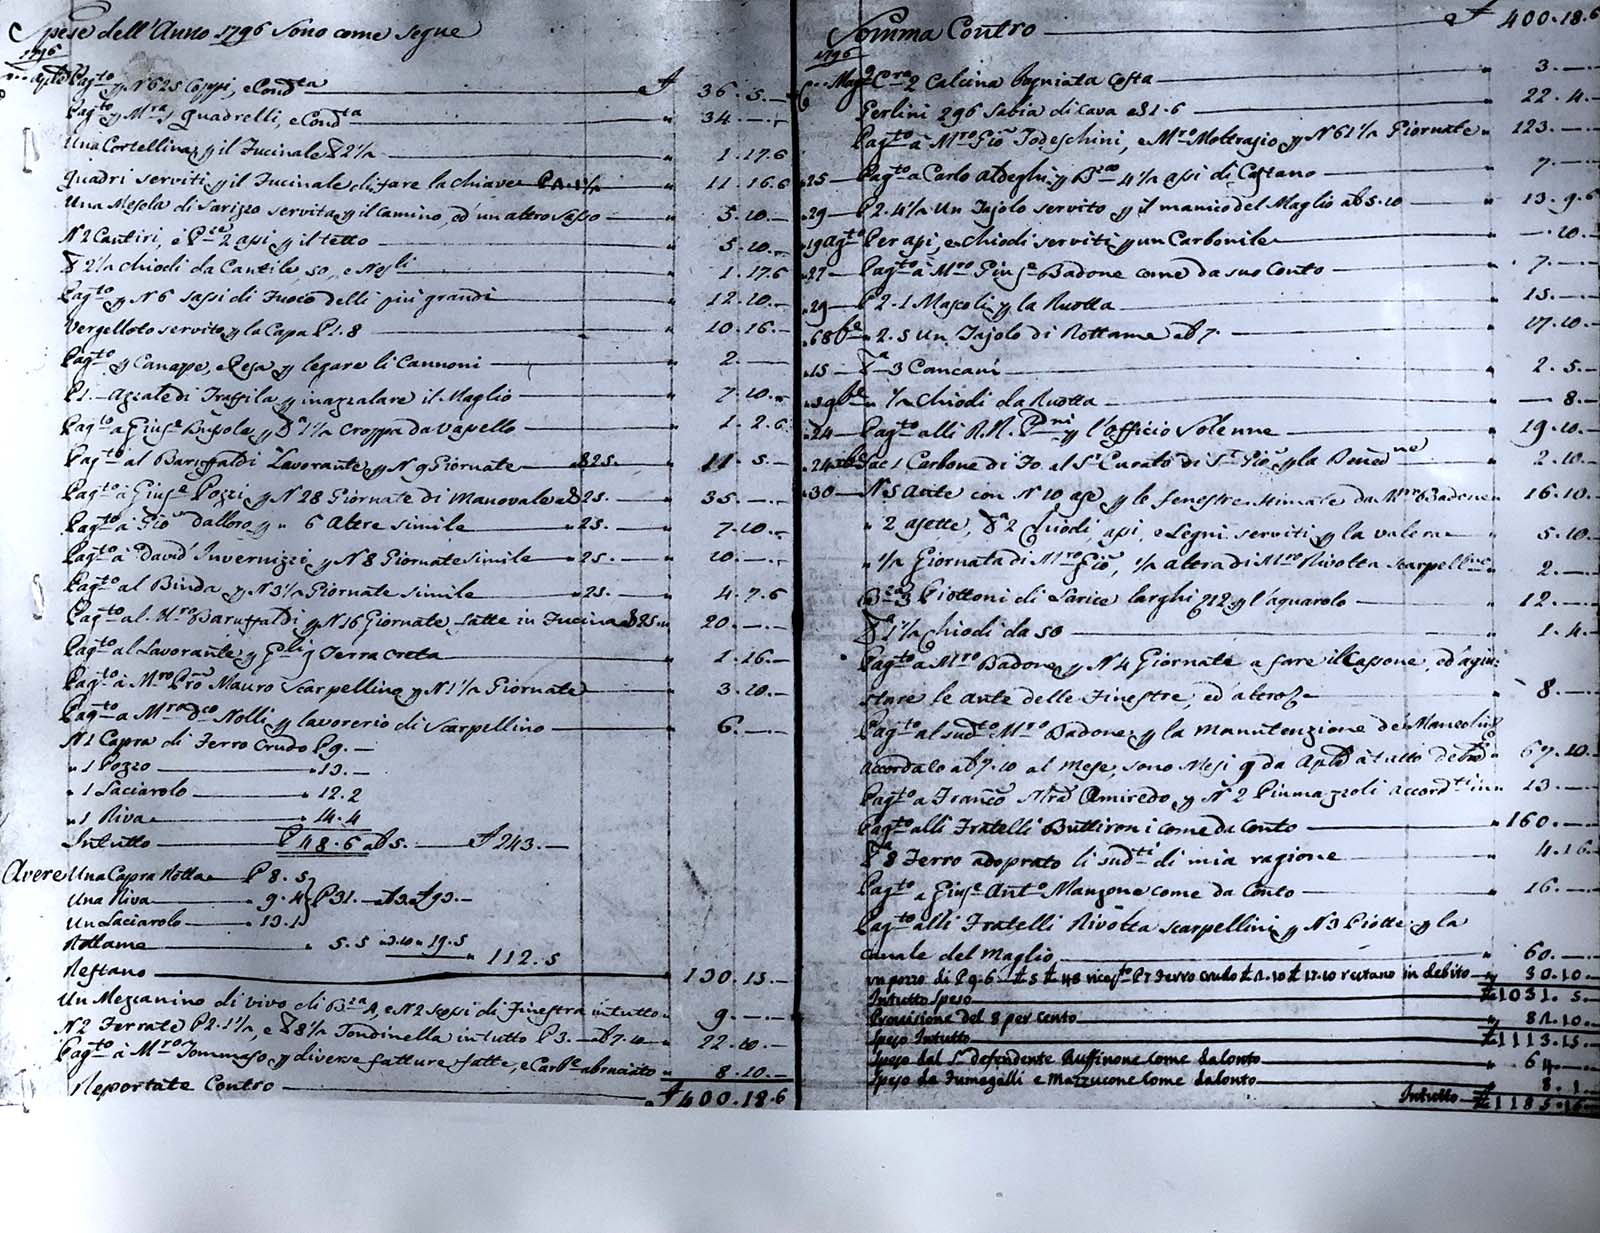 Spese dell'Anno 1796 Sono come Segue
1796
Pagto p N 625 Coppi, e Condta £ 36.5.-
Pagto p Mra quadrelli, e Condta " 34.-.-
Una Cortellina p il Fucinale 2½ " 1.17.6
quadri serviti p il Fucinale di fare la chiave " 11.16.6
Una Mesola di Sarizzo servita p il Camino, ed un altro Sasso " 5.10.-
N 2 Cantiri, e 2 assi p il tetto " 5.10.-
2½ chiodi da Cantile 50, e Negli " 1.17.6
Pagto p N 6 sassi di Fuoco delli più grandi " 12.10.-
Vergelloto servito p la Capa P 1.8 " 10.16.-
Pagto p Canape, e Pesa p legare li Cannoni " 2.-
P 1.- Azzale di Traffila p inazzalare il Maglio " 7.10.-
Pagto a Giuse p 1½ Croppa da Vasello " 1.2.6
Pagto al Baruffaldi Lavorante p N 9 Giornate 25.- " 11.5.-
Pagto à Giuse Pozzi p N 28 Giornate di Manovale 25.- " 35.-.-
Pagto à Gio dalloro p " 6 Altre simile " 25.- " 7.10.-
Pagto à David Invernizzi p N 8 Giornate simile " 25.- " 10.-.-
Pagto al Binda p N 3½ Giornate simile " 25.- " 4.7.6
Pagto al Mro Baruffaldi p N 16 Giornate fatte in Fucina 25 " 20.-.-
Pagto al Lavorante p Gli 9 Terra Creta " 1.16.-
Pagto à Mro Pro Mauro Scarpellino p N 1½ Giornate " 3.10.-
Pagto a Mro Nolli p lavorerio di Scarpellino " 6.-.-
N 1 Capra di Ferro Crudo P 9.-
" 1 Pozzo " 13.-
" 1 Laciarolo " 12.2
" 1 Riva " 14.4
Intutto P 48.6 a £ 5.- £ 243.-
Avere Una Capra Rotta P 8.5
Una Riva " 9.4 P 31.- a £ 3 £ 93.-
Un Laciarolo " 13.1
Rottame " 5.5 " 3.10 " 19.5
" 112.5
Restano " 130.15.-
Un Mezzanino di vivo di Bza 4, e N 2 sassi di Finestra intutto " 9.-.-
N 2 Ferrate P 2.1½, e 8½ Tondinella in tutto P 3.- a £ 7.10 " 22.10.-
Pagto à Mro Tommaso p diverse fatture fatte, e Carbe abruciato " 8.10.-
Reportate Contro £ 400.18.6
Somma Contro £ 400.18.6
1796
Magº Cora 2 Calcina bagniata Costa " 3.-
Perlini 296 Sabia di Cava a £ 1.6 " 22.4.-
Pagto à Mro Gio Todeschini, e Mro Moltrasio p N 61½ Giornate " 123.-
" 25 Pagto a Carlo Aldeghi p Bze 4½ assi di Castano " 7.-
" 29 P 2.4½ Un Tajolo servito p il manico del Maglio a £ 5.10 " 13.9.6
" 19 Agto Per assi, e chiodi serviti p un Carbonile " -.10.-
" 27 Pagto à Mro Giuse Badone come da suo Conto " 7.-
" 29 P 2.1 Mascoli p la Ruotta " 15.-
" 6 8be " 2.5 Un Tajolo di Rottame a £ 7 " 17.10.-
" 15 3 Cancani " 2.5.-
" 3 9be " ½ Chiodi da Ruotta " -.8.-
" 24 Pagto alli R.R. Pdni p l'Officio Solenne " 19.10.-
" 24 Xbe Sac 1 Carbone di Fo al Sr Curato di Sn Gio p la Benedne " 2.10.-
" 30 N 5 Ante con N 10 ase p le fenestre stimate da Mro Badone " 16.10.-
" 2 asette, 2 Chiodi, assi, e Legni serviti p la valera " 5.10.-
" ½ Giornata di Mro Gio, ½ altra di Mro Rivolta Scarpelline " 2.-
Bza 3 Piottoni di Larice larghi 12 p l'aquarolo " 12.-
1½ Chiodi da 50 " 1.4.-
Pagto à Mro Badone p N 4 Giornate a fare il Cassone, ed agiu:
stare le ante delle Finestre, ed altro " 8.-
Pagto al sudto Mro Badone p la Manutenzione de
accordato a £ 7.10 al Mese, sono Mesi 9 da Aple à tutto " 67.10.-
Pagto a Franco Amiredo p N 2 Piumazzoli accordti in " 13.-
Pagto alli Fratelli Buttironi come da Conto " 160.-
8 Ferro adoprato li sudti di mia ragione " 4.16.-
Pagto a Giuse Anto Manzone come da Conto " 16.-
Pagto alli Fratelli Rivolta Scarpellini p N 3 Piotte p la
canale del Maglio " 60.-
un pozzo di P 9.6 £ 5 £ 48 ricepto P 7 Ferro crudo £ 2.10 £ 17.10 restano in debito " 30.10.-
Intutto Speso £ 1031.5.-
Provisione del 8 per cento " 82.10.-
Speso Intutto £ 1113.15.-
Speso dal Sr Defendente Ruffinone Come da Conto " 64.-
Speso da Fumagalli e Mazzucone Come da Conto 8.1.-
Intutto £ 1185.16.-